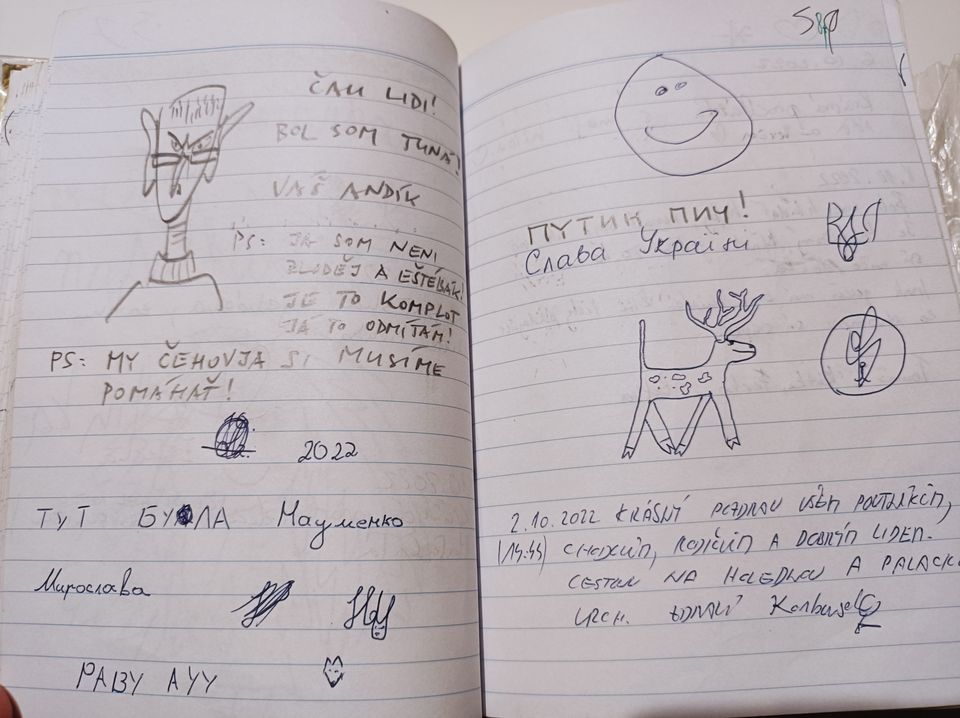 ČAU LIDI!
BOL SOM TUNA!
VAŠ ANDÍK
PS: JA SOM NENI
ZLODĚJ A EŠTÉBÁK!
JE TO KOMPLOT
JÁ TO ODMÍTÁM!
PS: MY ČEHOVJA SI MUSÍME
POMÁHAŤ!
2022
ТУТ БУЛА Мауменко
Мирослава
РАВУ АУУ
ПУТИН ПИЧ!
Слава Україні
2.10.2022 KRÁSNÝ POZDRAV VŠEM POUTNÍKŮM,
CHODCŮM, RODIČŮM A DOBRÝM LIDEM.
CESTOU NA HOLEDNOU A PALACK
VRCH. ZDRAVÍ